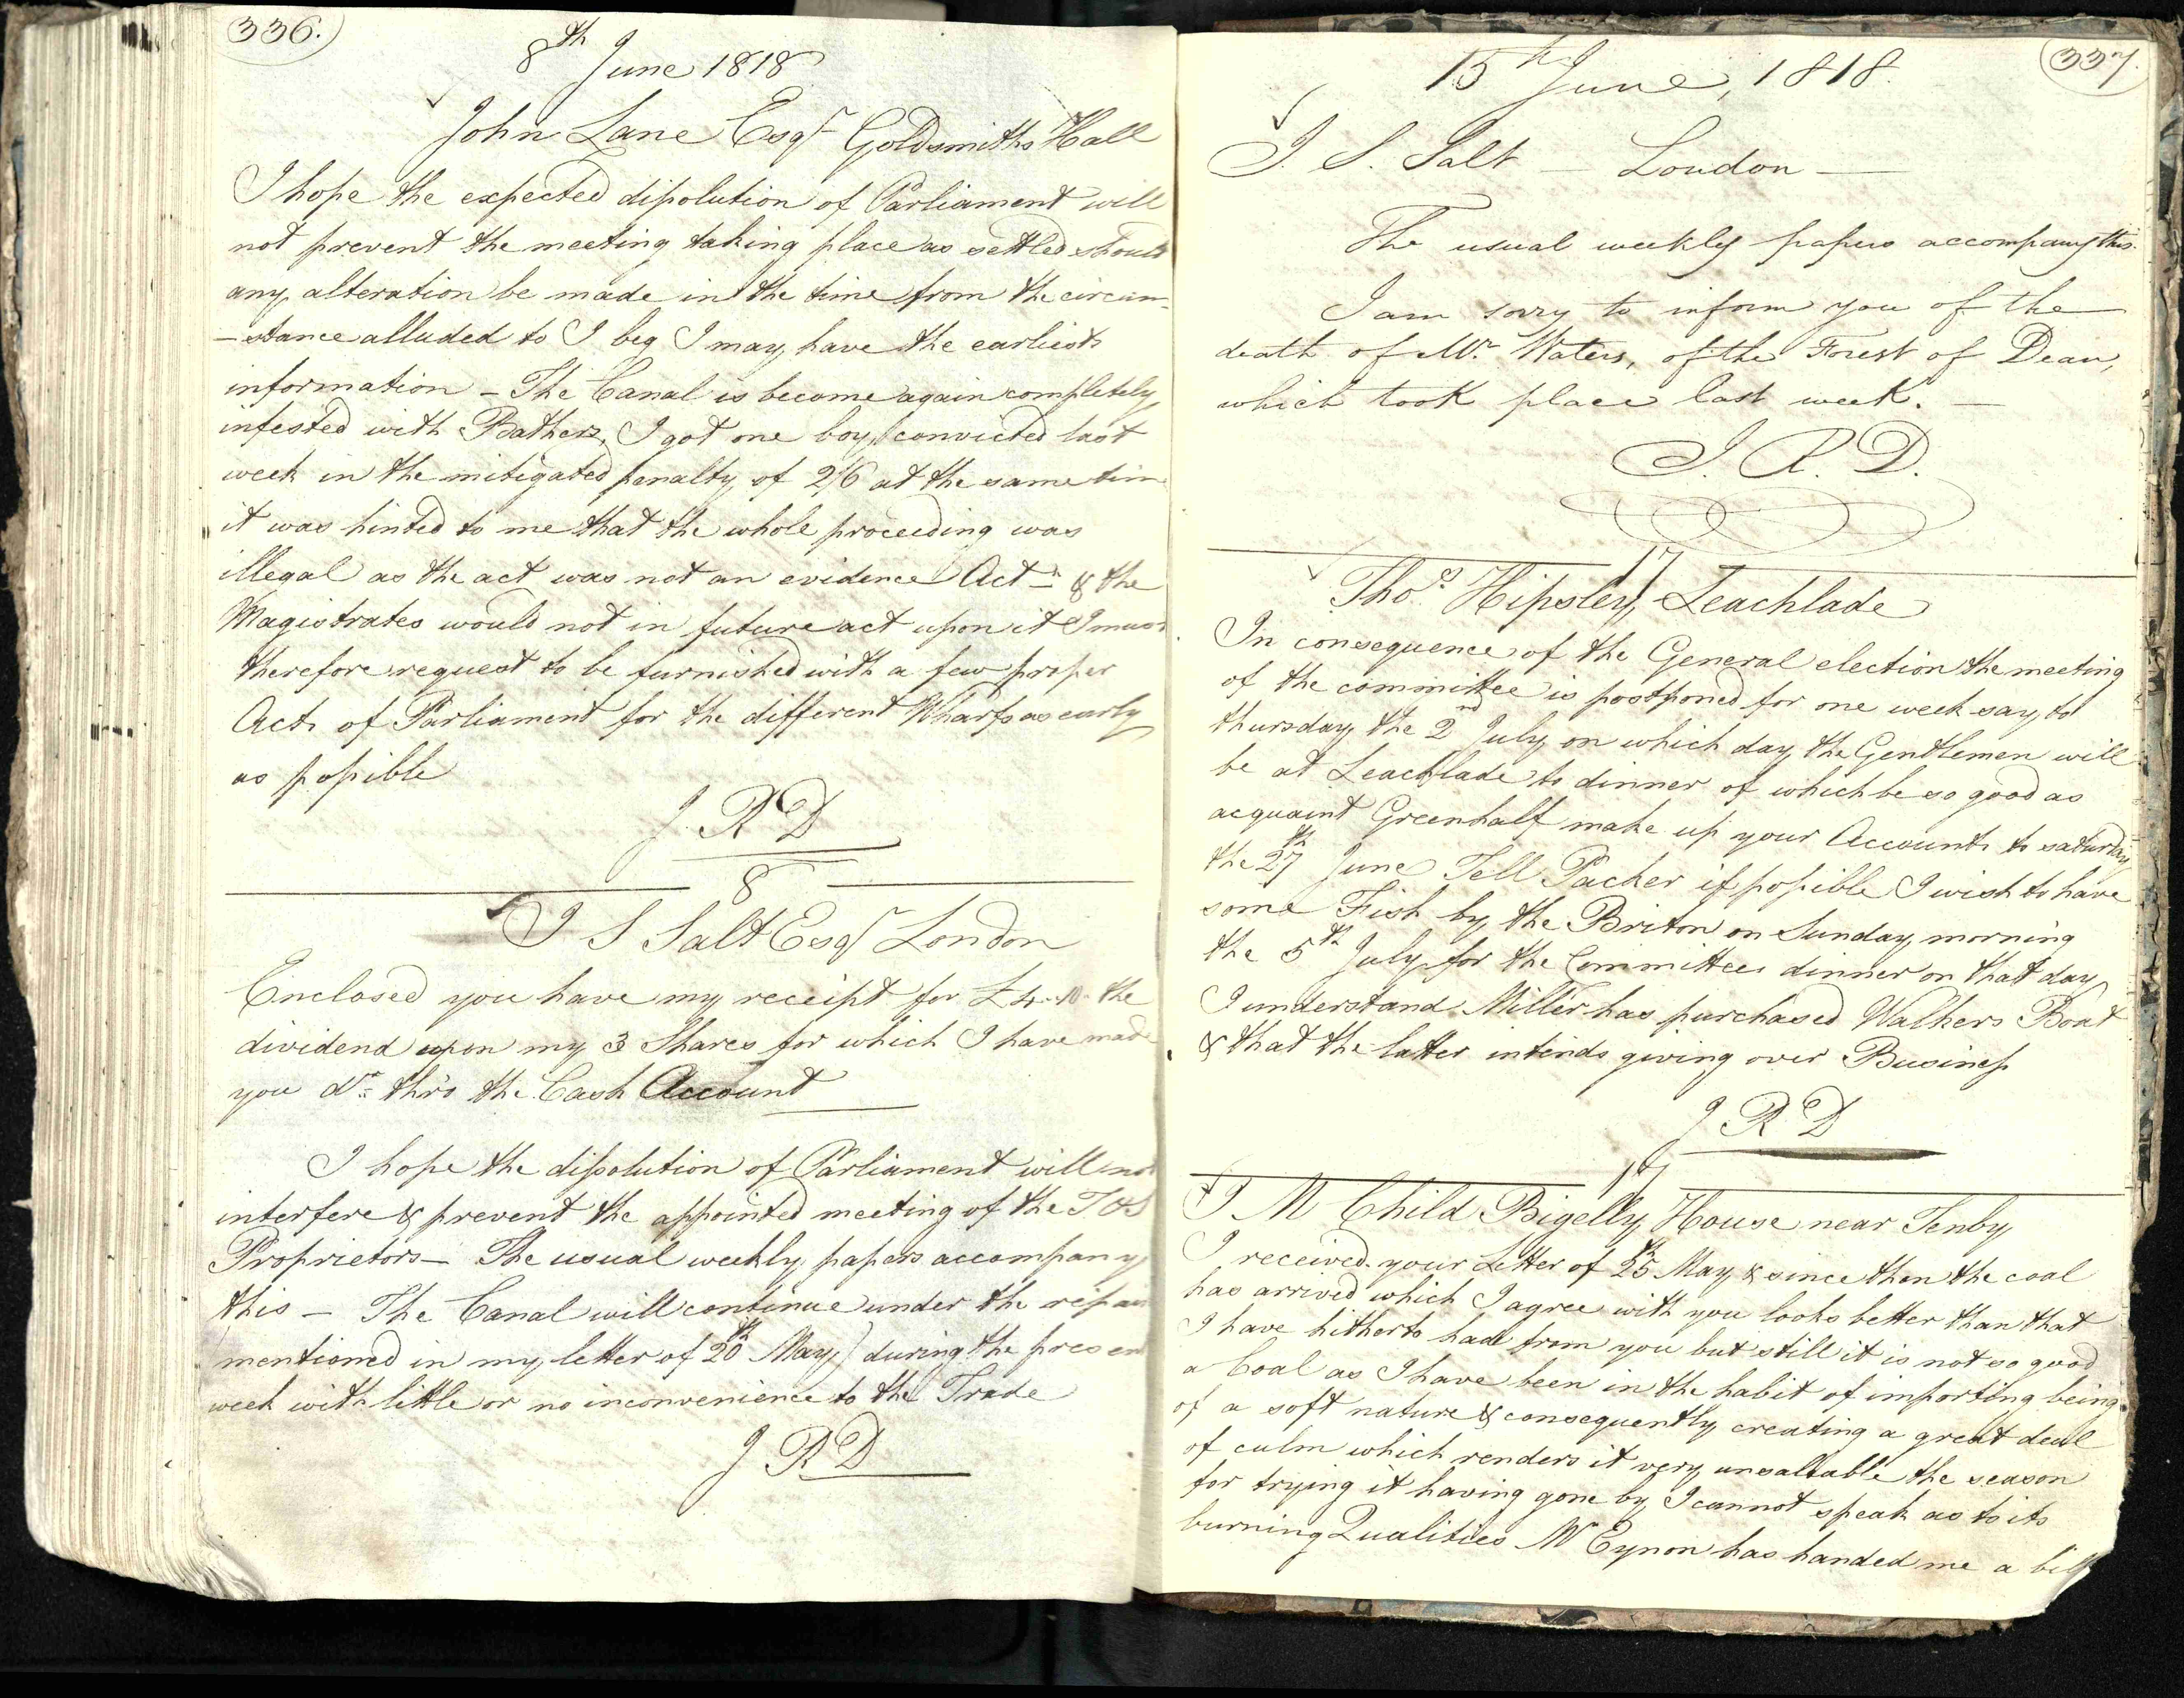 336.
8th June 1818
John Lane Esqr Goldsmiths Hall
I hope the expected dissolution of Parliament will
not prevent the meeting taking place as settled should
any alteration be made in the time from the circum-
-stance alluded to I beg I may have the earliest
information - The Canal is become again completely
infested with Bathers, I got one boy convicted last
week in the mitigated penalty of 2/6 at the same time
it was hinted to me that the whole proceeding was
illegal as the act was not an evidence Act - & the
Magistrates would not in future act upon it I must
therefore request to be furnished with a few proper
Acts of Parliament for the different Wharfs as early
as possible
J. R D
8
I S Salt Esqr London
Enclosed you have my receipt for £4-10- the
dividend upon my 3 Shares for which I have made
you Dr thro the Cash Account
I hope the dissolution of Parliament will not
interfere & prevent the appointed meeting of the T & S
Proprietors - The usual weekly papers accompany
this - The Canal will continue under the repair
mentioned in my letter of 20th May) during the present
week with little or no inconvenience to the Trade
J R D
337.
15th June, 1818.
I. S. Salt - London -
The usual weekly papers accompany this.
I am sorry to inform you of the
death of Mr. Waters, of the Forest of Dean,
which took place last week. -
J. R. D.
17
Thos. Hipsley, Leachlade
In consequence of the General election the meeting
of the committee is postponed for one week say to
thursday the 2nd July on which day the Gentlemen will
be at Leachlade to dinner of which be so good as
acquaint Greenhalf make up your Accounts to saturday
the 27th June Tell Packer if possible I wish to have
some Fish by the Briton on Sunday morning
the 5th July for the Committees dinner on that day
I understand Miller has purchased Walkers Boat
& that the latter intends giving over Business
J R D
17
J M Child Bigelly House near Tenby
I received your Letter of 25th May & since then the coal
has arrived which I agree with you looks better than that
I have hitherto had from you but still it is not so good
a Coal as I have been in the habit of importing being
of a soft nature & consequently creating a great deal
of culm which renders it very unsaleable the season
for trying it having gone by I cannot speak as to its
burning Qualities Mr Eynon has handed me a bill